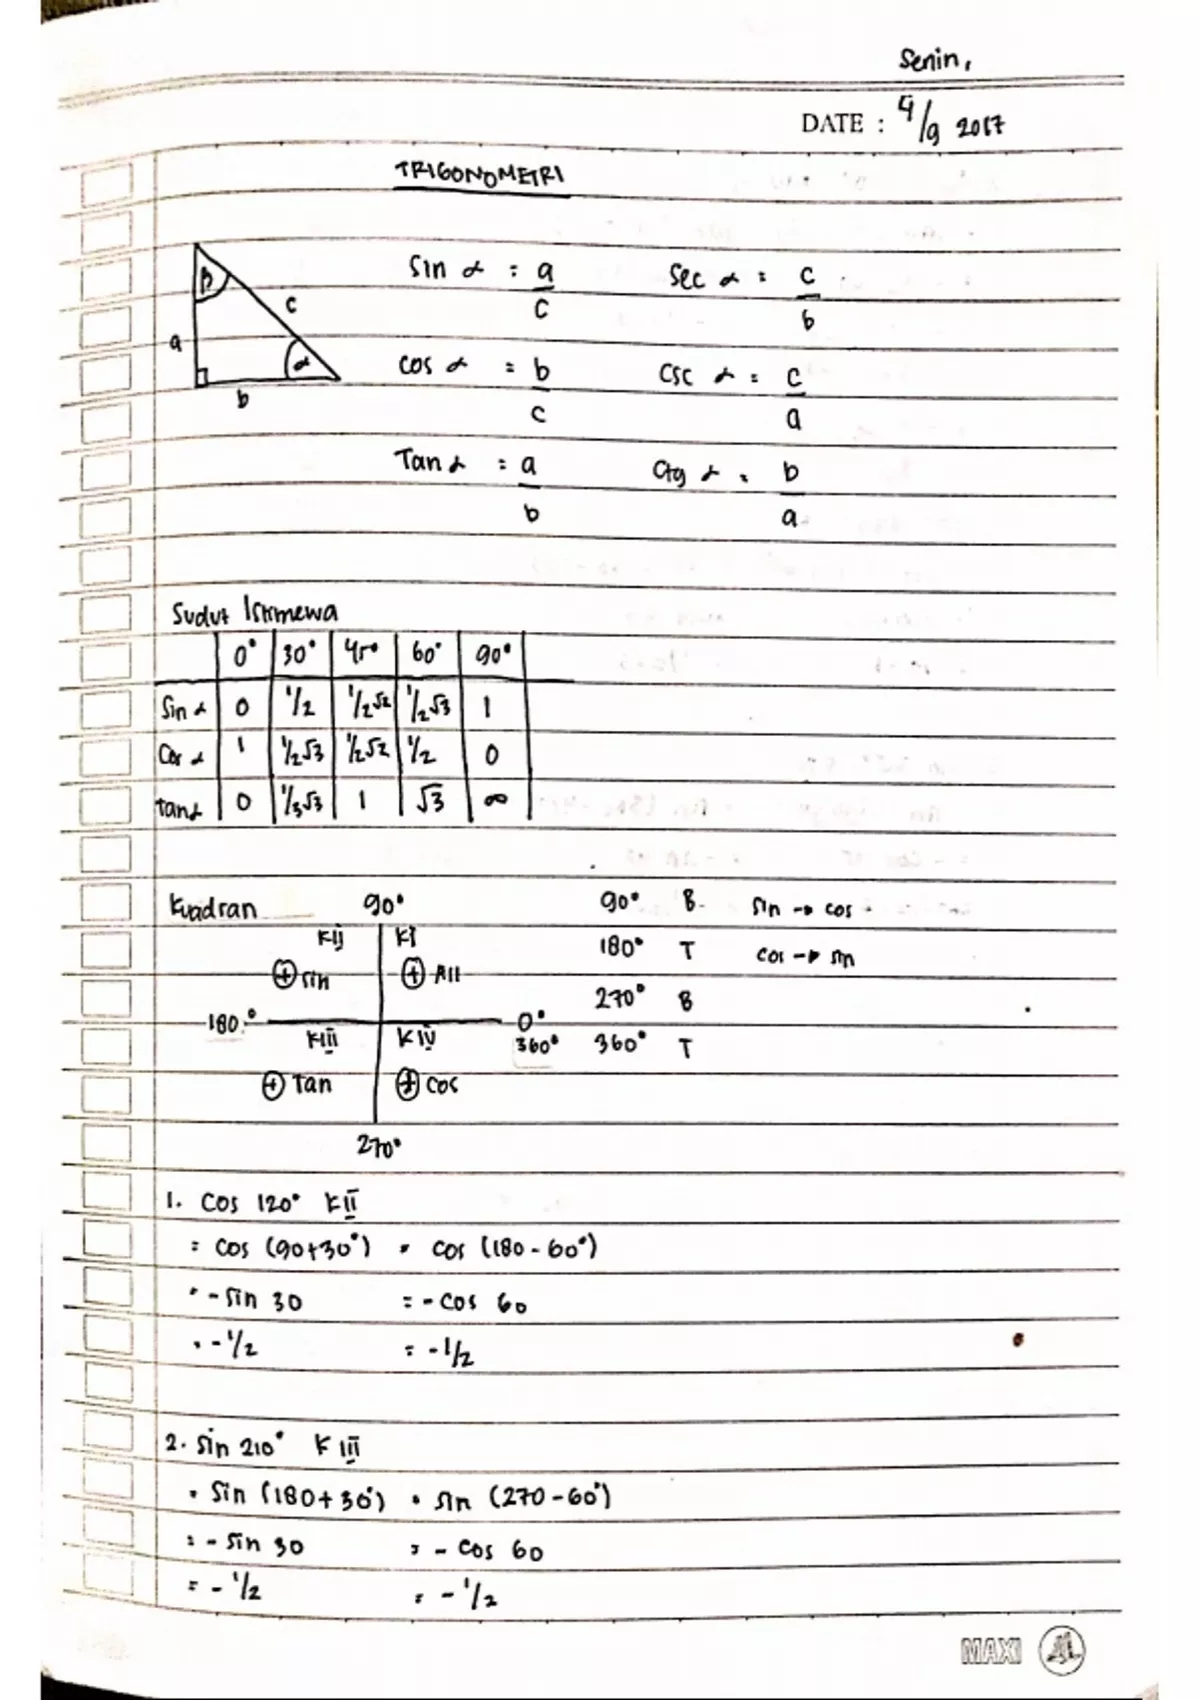 Senin,
DATE : 4/9 2017
TRIGONOMETRI
Sin α = a/c   Sec α = c/b
β
c
a
α
b
cos α = b/c   Csc α = c/a
Tan α = a/b   Ctg α = b/a
Sudut Istimewa
0° 30° 45° 60° 90°
Sin α 0 1/2 1/2√2 1/2√3 1
Cos α 1 1/2√3 1/2√2 1/2 0
tan α 0 1/3√3 1 √3 ∞
Kuadran 90° 90° B. sin → cos
KII KI 180° T cos → sin
⊕ sin ⊕ All
270° B
180° 0°
KIII KIV 360° 360° T
⊕ Tan ⊕ Cos
270°
1. Cos 120° KII
= cos (90+30°) = cos (180-60°)
= -sin 30 = -cos 60
= -1/2 = -1/2
2. Sin 210° KIII
= Sin (180+30°) = sin (270-60°)
= - sin 30 = - cos 60
= - 1/2 = - 1/2
MAXI